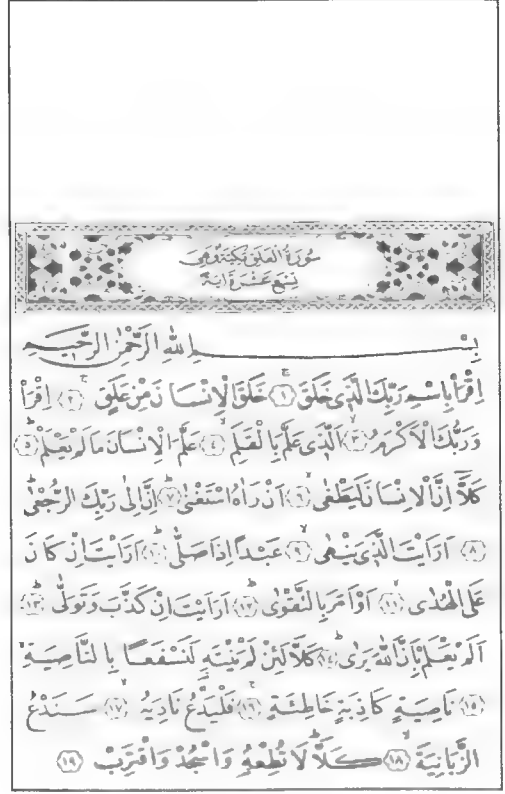 سُورَةُ الْعَلَقِ مَكِّيَّةٌ وَهِيَ
تِسْعَ عَشْرَةَ اٰيَةً
بِسْمِ اللّٰهِ الرَّحْمٰنِ الرَّحٖيمِ
اِقْرَاْ بِاسْمِ رَبِّكَ الَّذٖى خَلَقَ ﴿١﴾ۚ خَلَقَ الْاِنْسَانَ مِنْ عَلَقٍ ﴿٢﴾ۚ اِقْرَاْ
وَرَبُّكَ الْاَكْرَمُ ﴿٣﴾ۙ اَلَّذٖى عَلَّمَ بِالْقَلَمِ ﴿٤﴾ۙ عَلَّمَ الْاِنْسَانَ مَالَمْ يَعْلَمْ ﴿٥﴾ؕ
كَلَّٓا اِنَّ الْاِنْسَانَ لَيَطْغٰى ﴿٦﴾ۙ اَنْ رَاٰهُ اسْتَغْنٰى ﴿٧﴾ؕ اِنَّ اِلٰى رَبِّكَ الرُّجْعٰىؕ
﴿٨﴾ اَرَاَيْتَ الَّذٖى يَنْهٰى ﴿٩﴾ۙ عَبْدًا اِذَا صَلّٰى ﴿١٠﴾ؕ اَرَاَيْتَ اِنْ كَانَ
عَلَى الْهُدٰى ﴿١١﴾ۙ اَوْ اَمَرَ بِالتَّقْوٰى ﴿١٢﴾ؕ اَرَاَيْتَ اِنْ كَذَّبَ وَتَوَلّٰى ﴿١٣﴾ؕ
اَلَمْ يَعْلَمْ بِاَنَّ اللّٰهَ يَرٰى ﴿١٤﴾ؕ كَلَّا لَئِنْ لَمْ يَنْتَهِ لَنَسْفَعًا بِالنَّاصِيَةِۙ
﴿١٥﴾ نَاصِيَةٍ كَاذِبَةٍ خَاطِئَةٍ ﴿١٦﴾ۚ فَلْيَدْعُ نَادِيَهُ ﴿١٧﴾ۙ سَنَدْعُ
الزَّبَانِيَةَ ﴿١٨﴾ۙ كَلَّاؕ لَا تُطِعْهُ وَاسْجُدْ وَاقْتَرِبْ ﴿١٩﴾